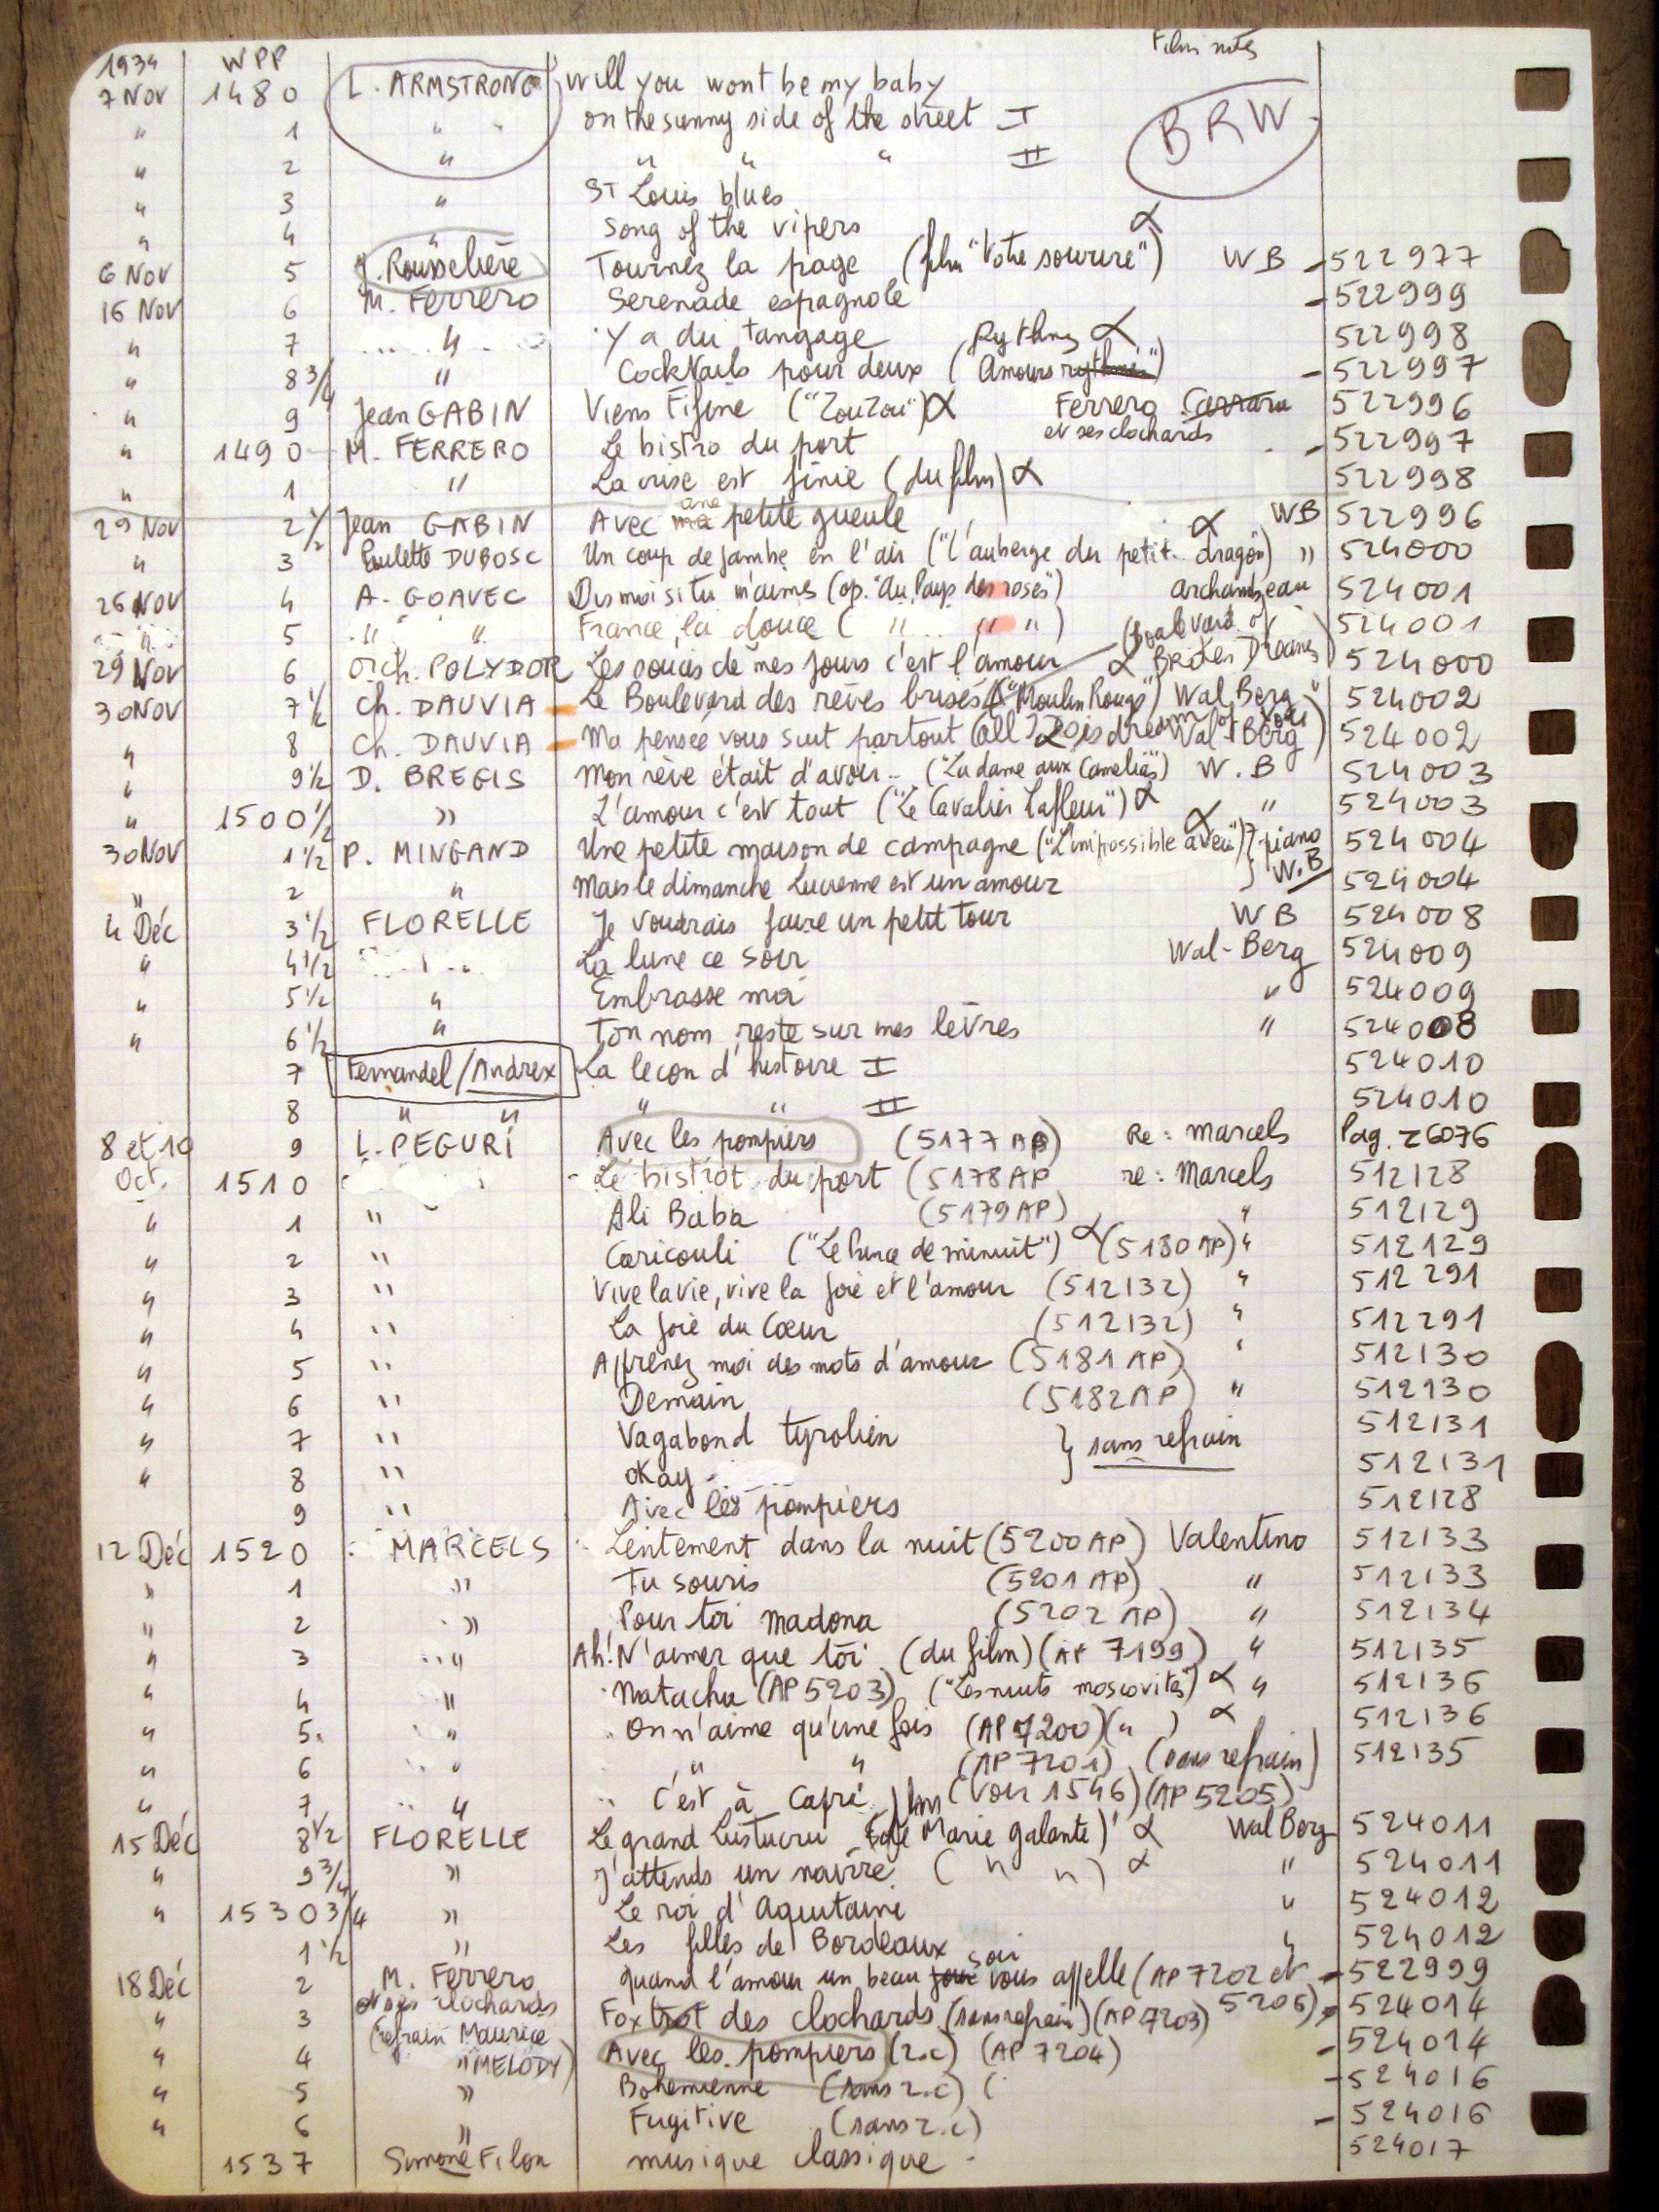 1934 WPP Film notes
7 Nov 1480 L. ARMSTRONG Will you wont be my baby
" 1 " on the sunny side of the street I BRW
" 2 " " " " II
" 3 " ST Louis blues
" 4 " Song of the vipers α
6 Nov 5 J. Rousselière Tournez la page (film "Votre sourire") WB -522977
16 Nov 6 M. Ferrero Serenade espagnole -522999
" 7 " Y a du tangage Rythmes α 522998
" 8 3/4 " Cocktails pour deux ("Amours rythmés") -522997
" 9 Jean GABIN Viens Fifine ("ZouZou") α Ferrero Carrara 522996
et ses clochards
" 1490 M. FERRERO Le bistro du port -522997
" 1 " La crise est finie (du film) α 522998
29 Nov 2 1/2 Jean GABIN Avec ma petite gueule WB 522996
" 3 Paulette DUBOSC Un coup de jambe en l'air ("l'auberge du petit dragon) α " 524000
26 Nov 4 A. GOAVEC Dis moi si tu m'aimes (op. "Au Pays des roses") Archambeau 524001
" 5 " " France la douce ( " " " ) 524001
29 Nov 6 Orch. POLYDOR Les soucis de mes jours c'est l'amour α (Boulevard of Broken Dreams) 524000
30 Nov 7 1/2 Ch. DAUVIA Le Boulevard des rêves brisés ("Moulin Rouge") Wal Berg " 524002
" 8 Ch. DAUVIA Ma pensée vous suit partout (All I do is dream of you) Wal-Berg 524002
" 9 1/2 D. BREGIS Mon rêve était d'avoir.. ("La dame aux Camelias") W.B 524003
" 1500 1/2 " L'amour c'est tout ("Le Cavalier Lafleur") α " 524003
30 Nov 1 1/2 P. MINGAND Une petite maison de campagne ("L'impossible aveu") α } piano 524004
" 2 " Mais le dimanche Lucienne est un amour } W.B 524004
4 Déc 3 1/2 FLORELLE Je voudrais faire un petit tour WB 524008
" 4 1/2 La lune ce soir Wal-Berg 524009
" 5 1/2 " Embrasse moi " 524009
" 6 1/2 " Ton nom reste sur mes lèvres " 524008
7 Fernandel/Andrex La lecon d'histoire I 524010
8 " " " " II 524010
8 et 10 9 L. PEGURI Avec les pompiers (5177 AP) Re: Marcels Pag. 26076
Oct. 1510 Le bistrot du port (5178 AP re: Marcels 512128
" 1 " Ali Baba (5179 AP) " 512129
" 2 " Caricouli ("Le Prince de minuit") α (5180 AP) " 512129
" 3 " Vive la vie, vive la joie et l'amour (512132) " 512291
" 4 " La joie du Cœur (512132) " 512291
" 5 " Apprenez moi des mots d'amour (5181 AP) " 512130
" 6 " Demain (5182 AP) " 512130
" 7 " Vagabond tyrolien } sans refrain 512131
" 8 " Okay 512131
9 " Avec les pompiers 512128
12 Déc 1520 MARCELS Lentement dans la nuit (5200 AP) Valentino 512133
" 1 " Tu souris (5201 AP) " 512133
" 2 " Pour toi madona (5202 AP) " 512134
" 3 " Ah! N'aimer que toi (du film) (AP 7199) " 512135
" 4 " Natacha (AP 5203) ("Les nuits moscovites") α " 512136
" 5 " On n'aime qu'une fois (AP 7200) ( " ) α 512136
" 6 " " " (AP 7201) (sans refrain) 512135
" 7 " C'est à Capri (voir 1546) (AP 5205)
15 Déc 8 1/2 FLORELLE Le grand Lustucru (de Marie galante) α Wal Berg 524011
" 9 3/4 " J'attends un navire ( " " ) α " 524011
" 1530 3/4 " Le roi d'Aquitaine " 524012
1 1/2 " Les filles de Bordeaux " 524012
18 Déc 2 M. Ferrero quand l'amour un beau jour soir vous appelle (AP 7202 et 5206) -522999
" 3 et ses clochards Foxtrot des clochards (sans refrain) (AP 7203) -524014
" 4 (refrain Maurice MELODY) Avec les pompiers (r.c) (AP 7204) -524014
" 5 " Bohemienne (sans r.c) ( -524016
" 6 " Fugitive (sans r.c) -524016
1537 Simone Filon musique classique - 524017